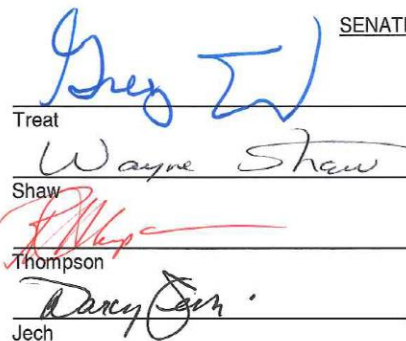 SENATE
Greg
Treat
Wayne Shaw
Shaw
Thompson
Darcy Jech
Jech